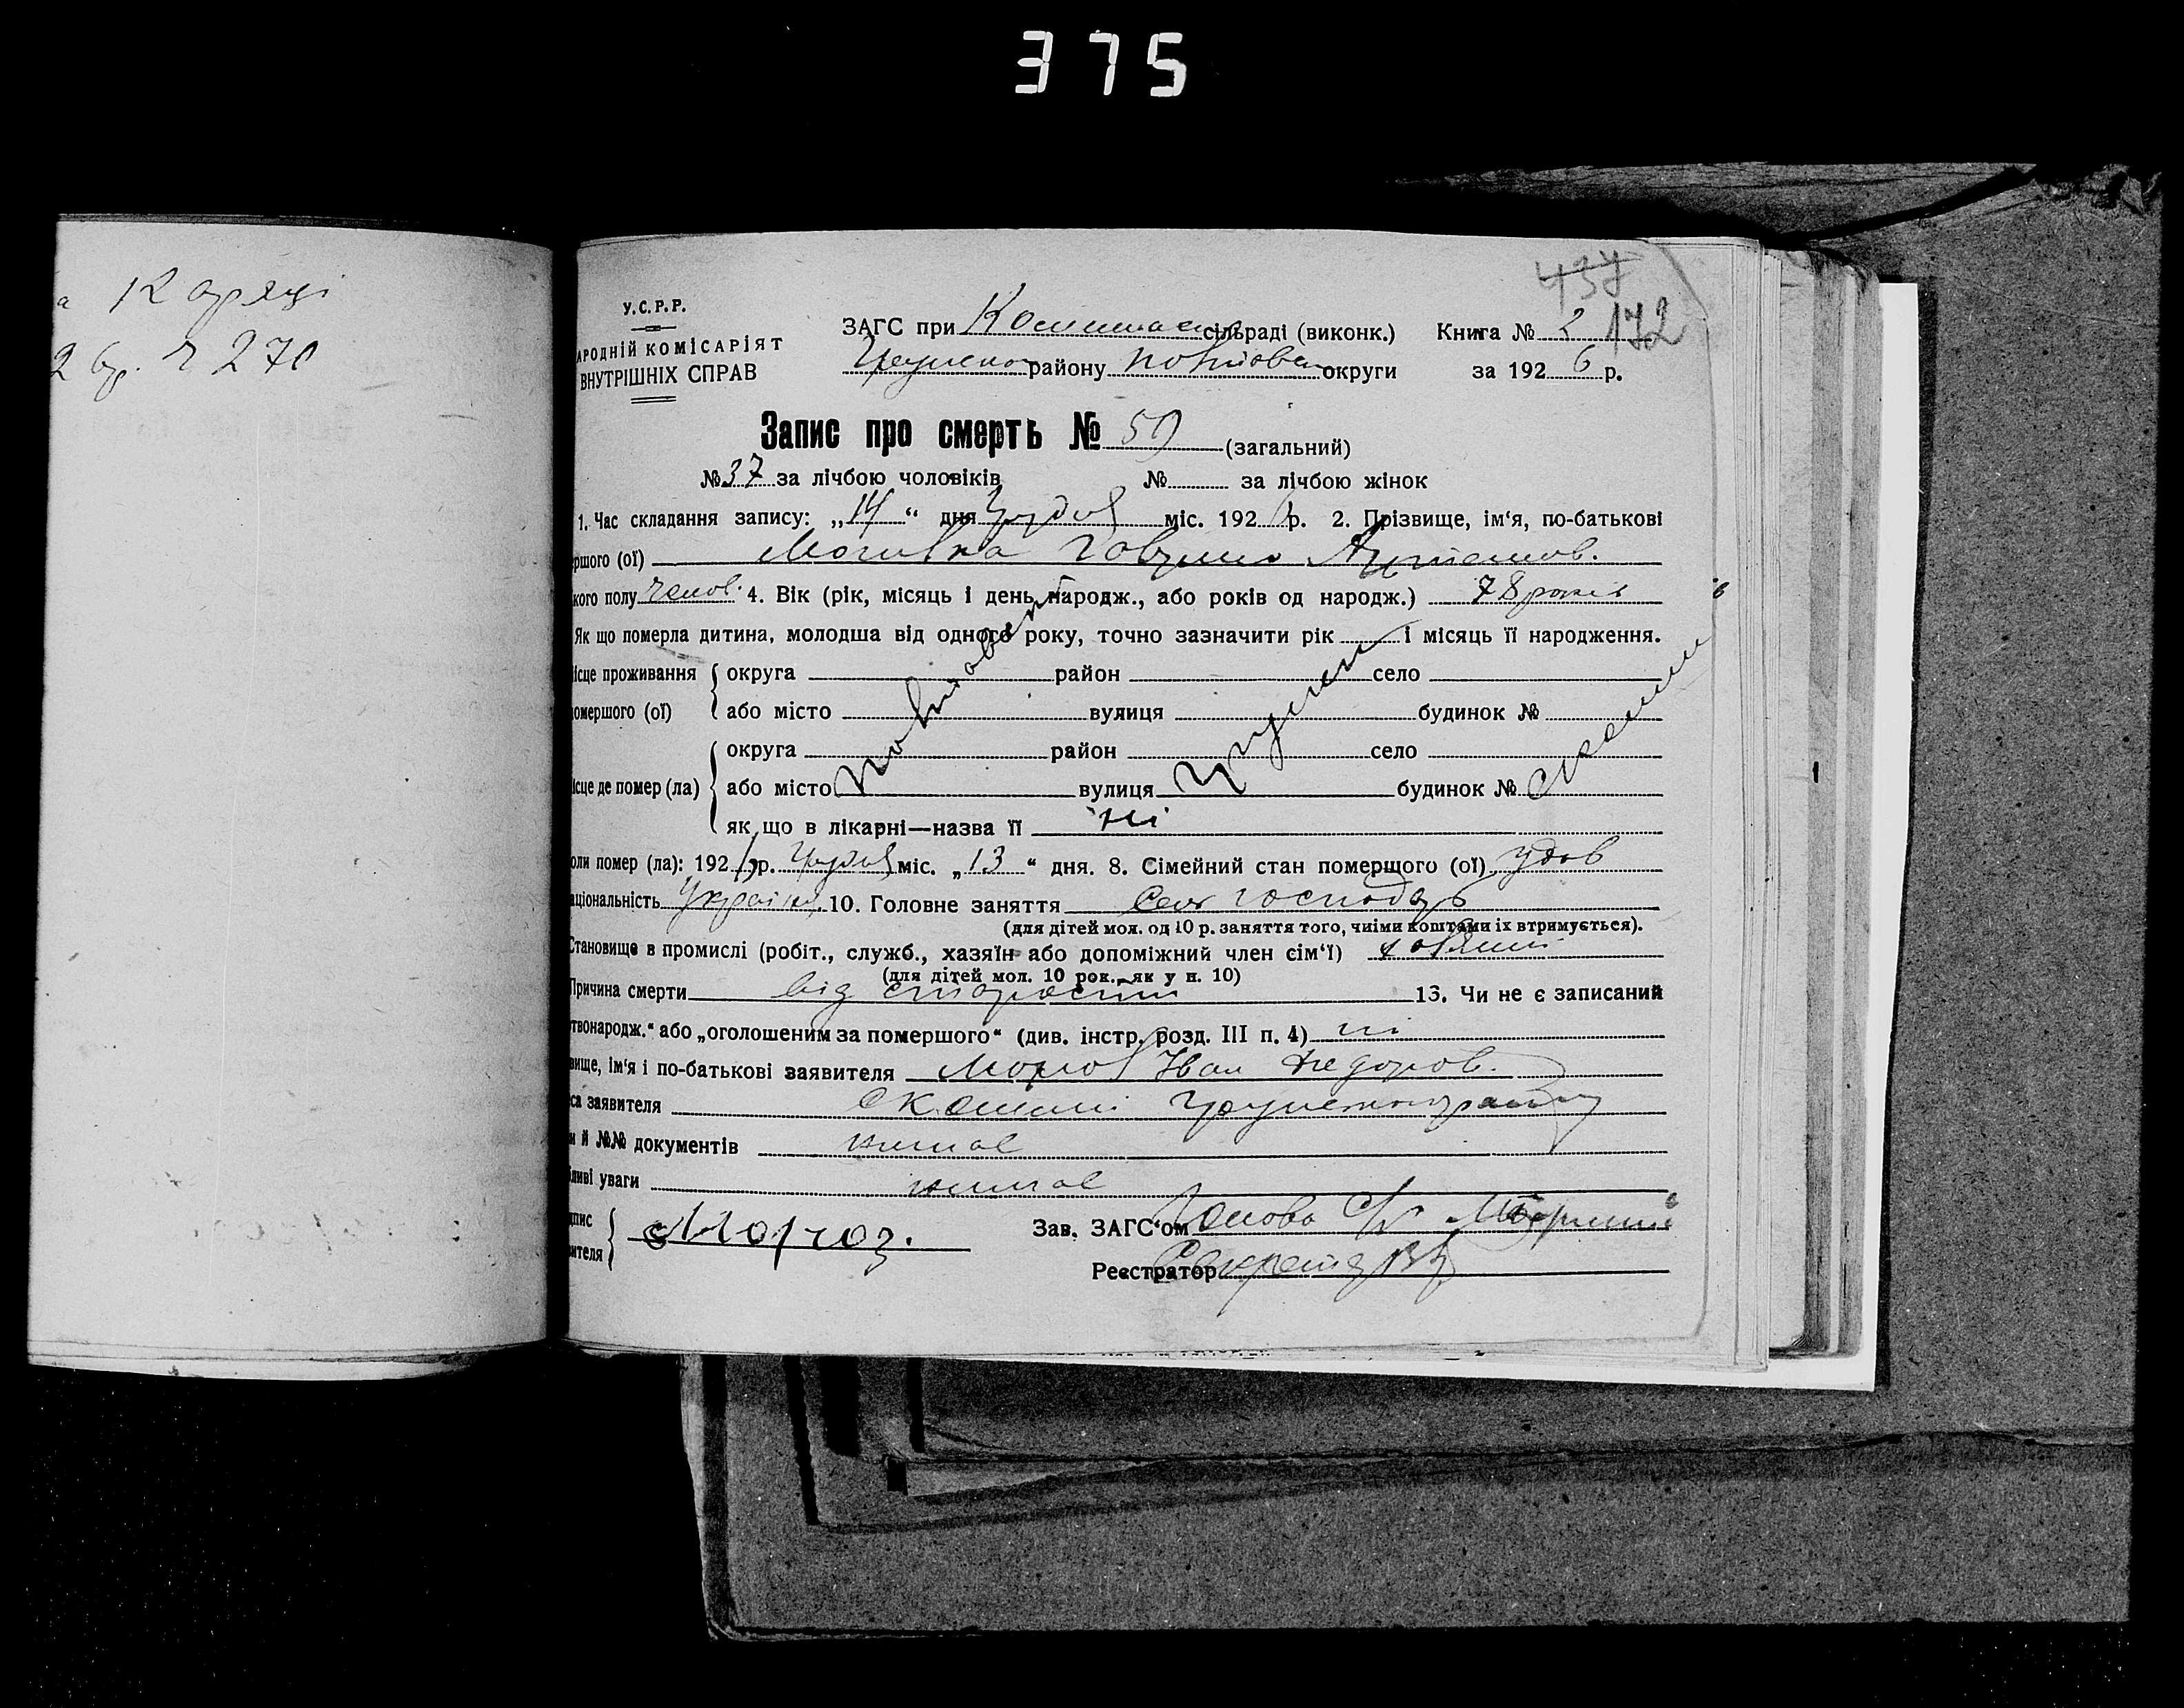 375
12 аркуші
2 бр. 270
437
172
У.С.Р.Р.
АРОДНІЙ КОМІСАРІЯТ
ВНУТРІШНІХ СПРАВ
ЗАГС при сільраді (виконк.) Книга № 2
району Полтовськ округи за 1926 р.
Запис про смерть № 59 (загальний)
№ 37 за лічбою чоловіків № за лічбою жінок
1. Час складання запису: „14“ дня Грудня міс. 1926 р. 2. Прізвище, ім‘я, по-батькові
ршого (ої) Могилка Гаврило Артемов.
кого полу чолов. 4. Вік (рік, місяць і день народж., або років од народж.) 78 років
Як що померла дитина, молодша від одного року, точно зазначити рік і місяць її народження.
ісце проживання округа район село
омершого (ої) або місто вулиця будинок №
округа район село
ісце де помер (ла) або місто вулиця будинок №
як що в лікарні—назва її ні
оли помер (ла): 1926 р. Грудня міс. „13“ дня. 8. Сімейний стан померщого (ої) удов
аціональність Україн. 10. Головне заняття Сель господар
(для дітей мол. од 10 р. заняття того, чиїми коштами їх втримується).
Становище в промислі (робіт., служб., хазяїн або допоміжний член сім‘ї) хазяїн
(для дітей мол. 10 рок. як у п. 10)
Причина смерти від старости 13. Чи не є записаний
твонародж.“ або „оголошеним за помершого“ (див. інстр. розд. III п. 4) ні
вище, ім‘я і по-батькові заявителя Мороз Іван Федоров.
са заявителя
и й №№ документів немає
ливі уваги немає
дпис
вителя Мороз.
Зав. ЗАГС‘ом Голова С/Р
Реєстратор Секретар